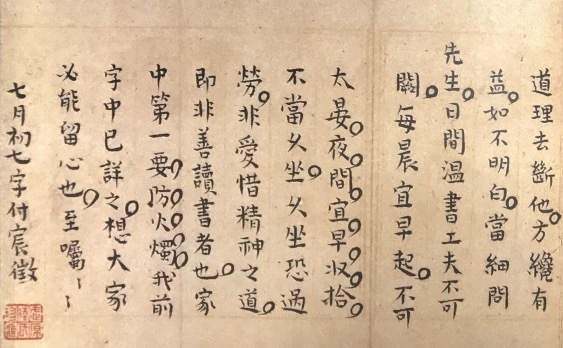 道理去斷他方纔有
益如不明白當細問
先生日間溫書工夫不可
闕每晨宜早起不可
太晏夜間宜早收拾
不當久坐久坐恐過
勞非愛惜精神之道
即非善讀書者也家
中第一要防火燭我前
字中已詳之想大家
必能留心也至囑〻〻
七月初七字付宸徵